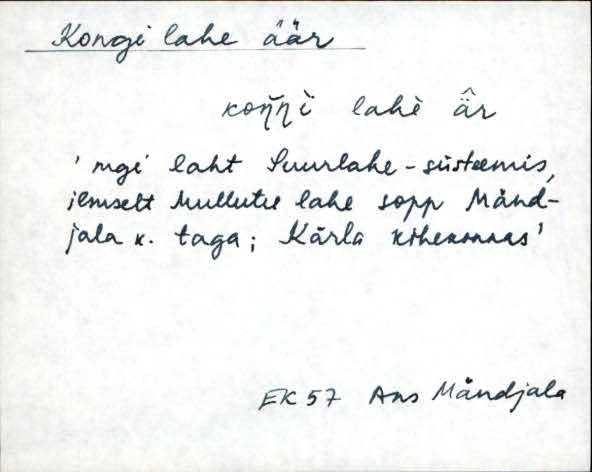 Kongi lahe äär
koŋ̆ŋì lahè ä̂r
'mgi laht Suurlahe-süsteemis,
ilmselt Mullutu lahe sopp Mänd-
jala k. taga; Kärla kihelkonnas'
EK 57 Ans Mändjala